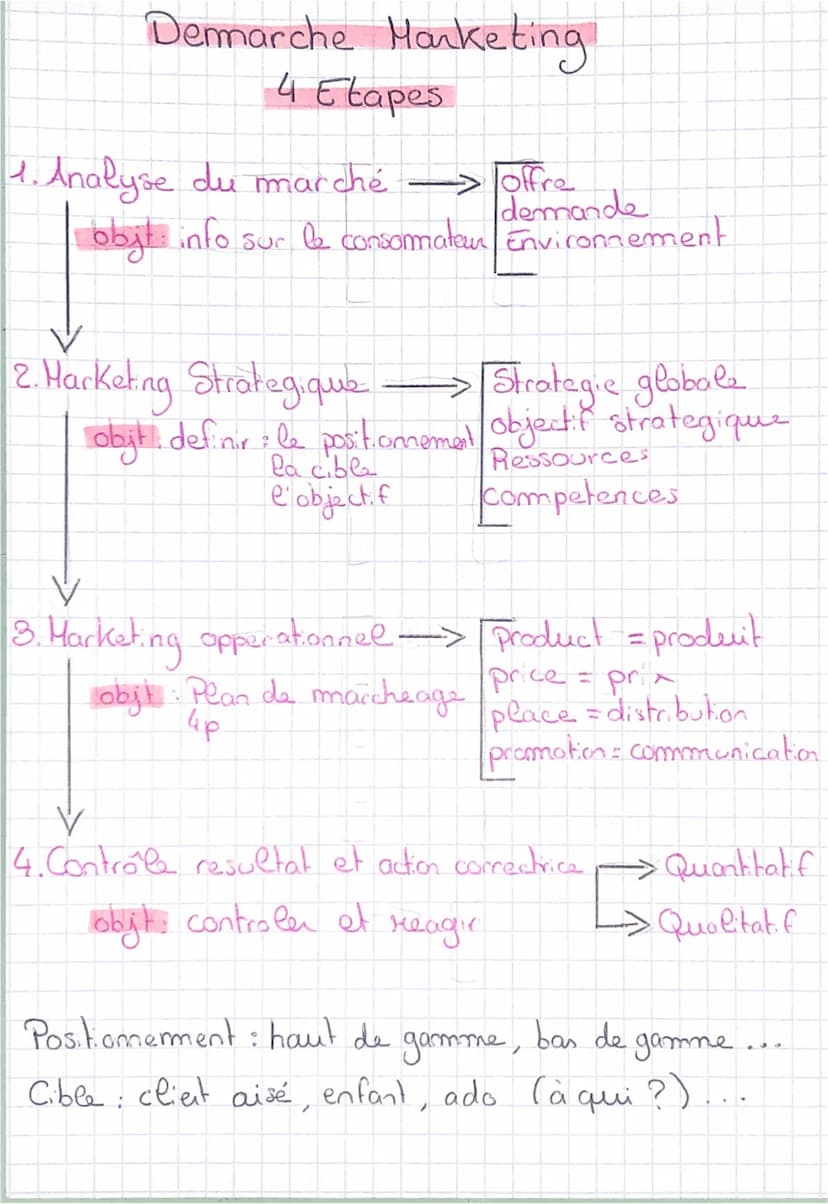 Demarche Marketing
4 Etapes
1. Analyse du marché → offre
demande
objt : info sur le consommateur Environnement
2. Marketing Strategique → Strategie globale
objt : definir : le positionnement objectif strategique
la cible Ressources
l'objectif competences
3. Marketing opperationnel → product = produit
price = prix
objt : Plan de marcheage place = distribution
4p
promotion = communication
4. Contrôle resultat et action correctrice → Quantitatif
objt : controler et reagir → Qualitatif
Positionnement : haut de gamme, bas de gamme ...
Cible : client aisé, enfant, ado (à qui ?) ...